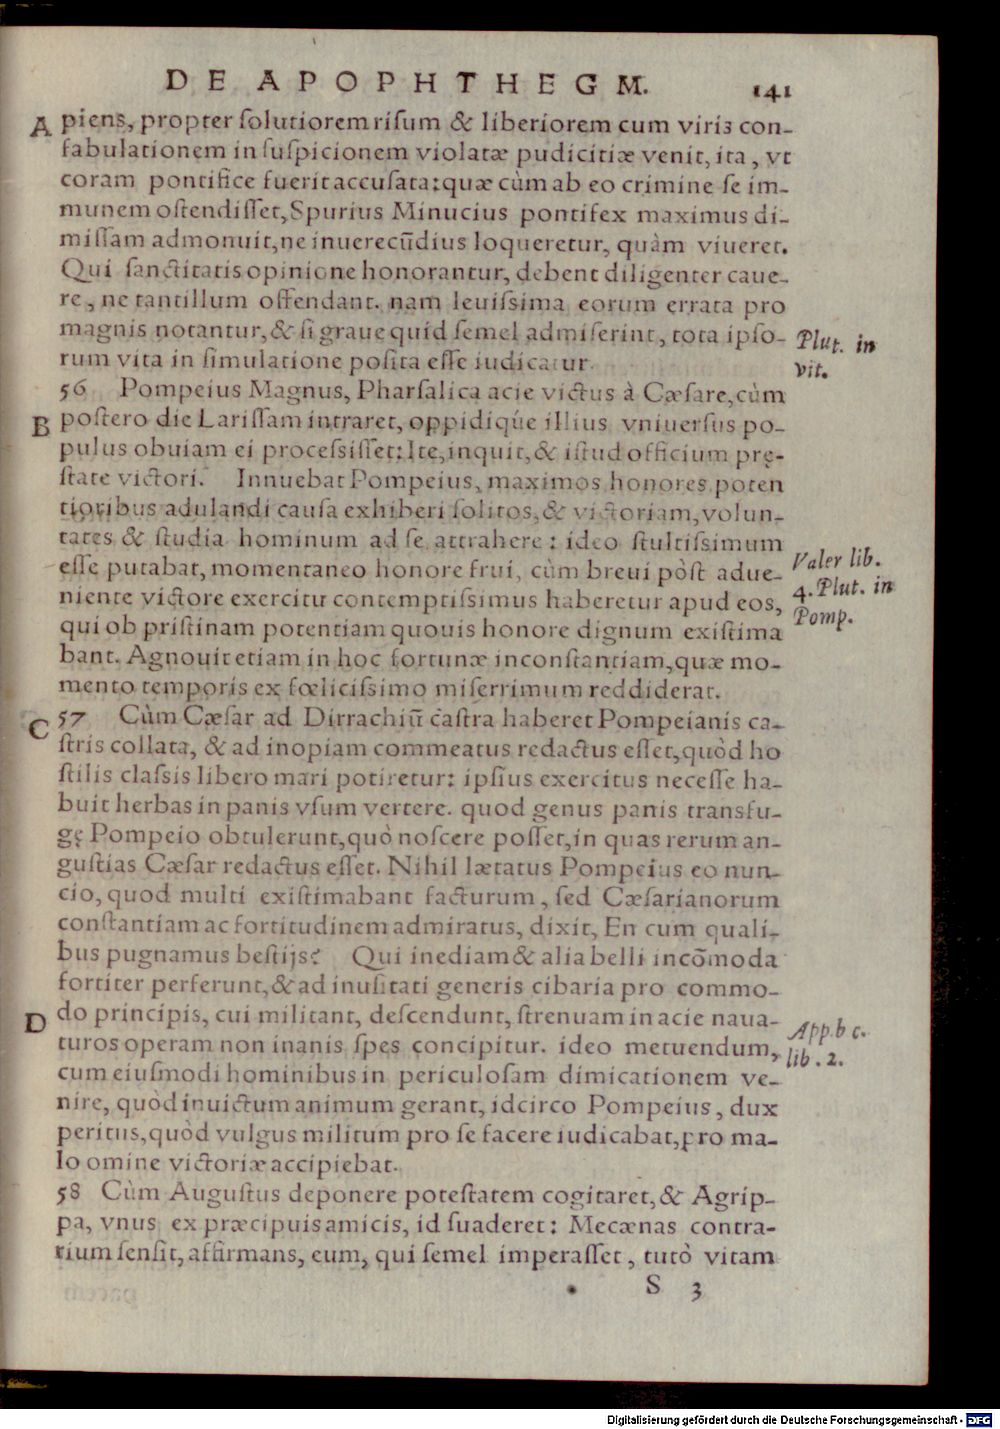 DE APOPHTHEGM. 141
A piens, propter ſolutiorem riſum & liberiorem cum viris con-
fabulationem in ſuſpicionem violatæ pudicitiæ venit, ita, vt
coram pontifice fuerit accuſata: quæ cùm ab eo crimine ſe im-
munem oſtendiſſet, Spurius Minucius pontifex maximus di-
miſſam admonuit, ne inuerecūdius loqueretur, quàm viueret.
Qui ſanctitatis opinione honorantur, debent diligenter caue-
re, ne tantillum offendant. nam leuiſsima eorum errata pro
magnis notantur, & ſi graue quid ſemel admiſerint, tota ipſo-
rum vita in ſimulatione poſita eſſe iudicatur.
Plut. in
vit.
56 Pompeius Magnus, Pharſalica acie victus à Cæſare, cùm
B poſtero die Lariſſam intraret, oppidiq́ue illius vniuerſus po-
pulus obuiam ei proceſsiſſet: Ite, inquit, & iſtud officium prę-
ſtate victori. Innuebat Pompeius, maximos honores poten
tioribus adulandi cauſa exhiberi ſolitos, & victoriam, volun-
tates & ſtudia hominum ad ſe attrahere: ideo ſtultiſsimum
eſſe putabat, momentaneo honore frui, cùm breui pòſt adue-
niente victore exercitu contemptiſsimus haberetur apud eos,
qui ob priſtinam potentiam quouis honore dignum exiſtima
bant. Agnouit etiam in hoc fortunæ inconſtantiam, quæ mo-
mento temporis ex fœliciſsimo miſerrimum reddiderat.
Valer lib.
4. Plut. in
Pomp.
C 57 Cùm Cæſar ad Dirrachiū caſtra haberet Pompeianis ca-
ſtris collata, & ad inopiam commeatus redactus eſſet, quòd ho
ſtilis claſsis libero mari potiretur: ipſius exercitus neceſſe ha-
buit herbas in panis vſum vertere. quod genus panis transfu-
gę Pompeio obtulerunt, quò noſcere poſſet, in quas rerum an-
guſtias Cæſar redactus eſſet. Nihil lætatus Pompeius eo nun-
cio, quod multi exiſtimabant facturum, ſed Cæſarianorum
conſtantiam ac fortitudinem admiratus, dixit, En cum quali-
bus pugnamus beſtijs? Qui inediam & alia belli incōmoda
fortiter perferunt, & ad inuſitati generis cibaria pro commo-
D do principis, cui militant, deſcendunt, ſtrenuam in acie naua-
turos operam non inanis ſpes concipitur. ideo metuendum,
cum eiuſmodi hominibus in periculoſam dimicationem ve-
nire, quòd inuictum animum gerant, idcirco Pompeius, dux
peritus, quòd vulgus militum pro ſe facere iudicabat, pro ma-
lo omine victoriæ accipiebat.
App. b c.
lib. 2.
58 Cùm Auguſtus deponere poteſtatem cogitaret, & Agrip-
pa, vnus ex præcipuis amicis, id ſuaderet: Mecænas contra-
rium ſenſit, affirmans, eum, qui ſemel imperaſſet, tutò vitam
S 3
Digitalisierung gefördert durch die Deutsche Forschungsgemeinschaft - DFG